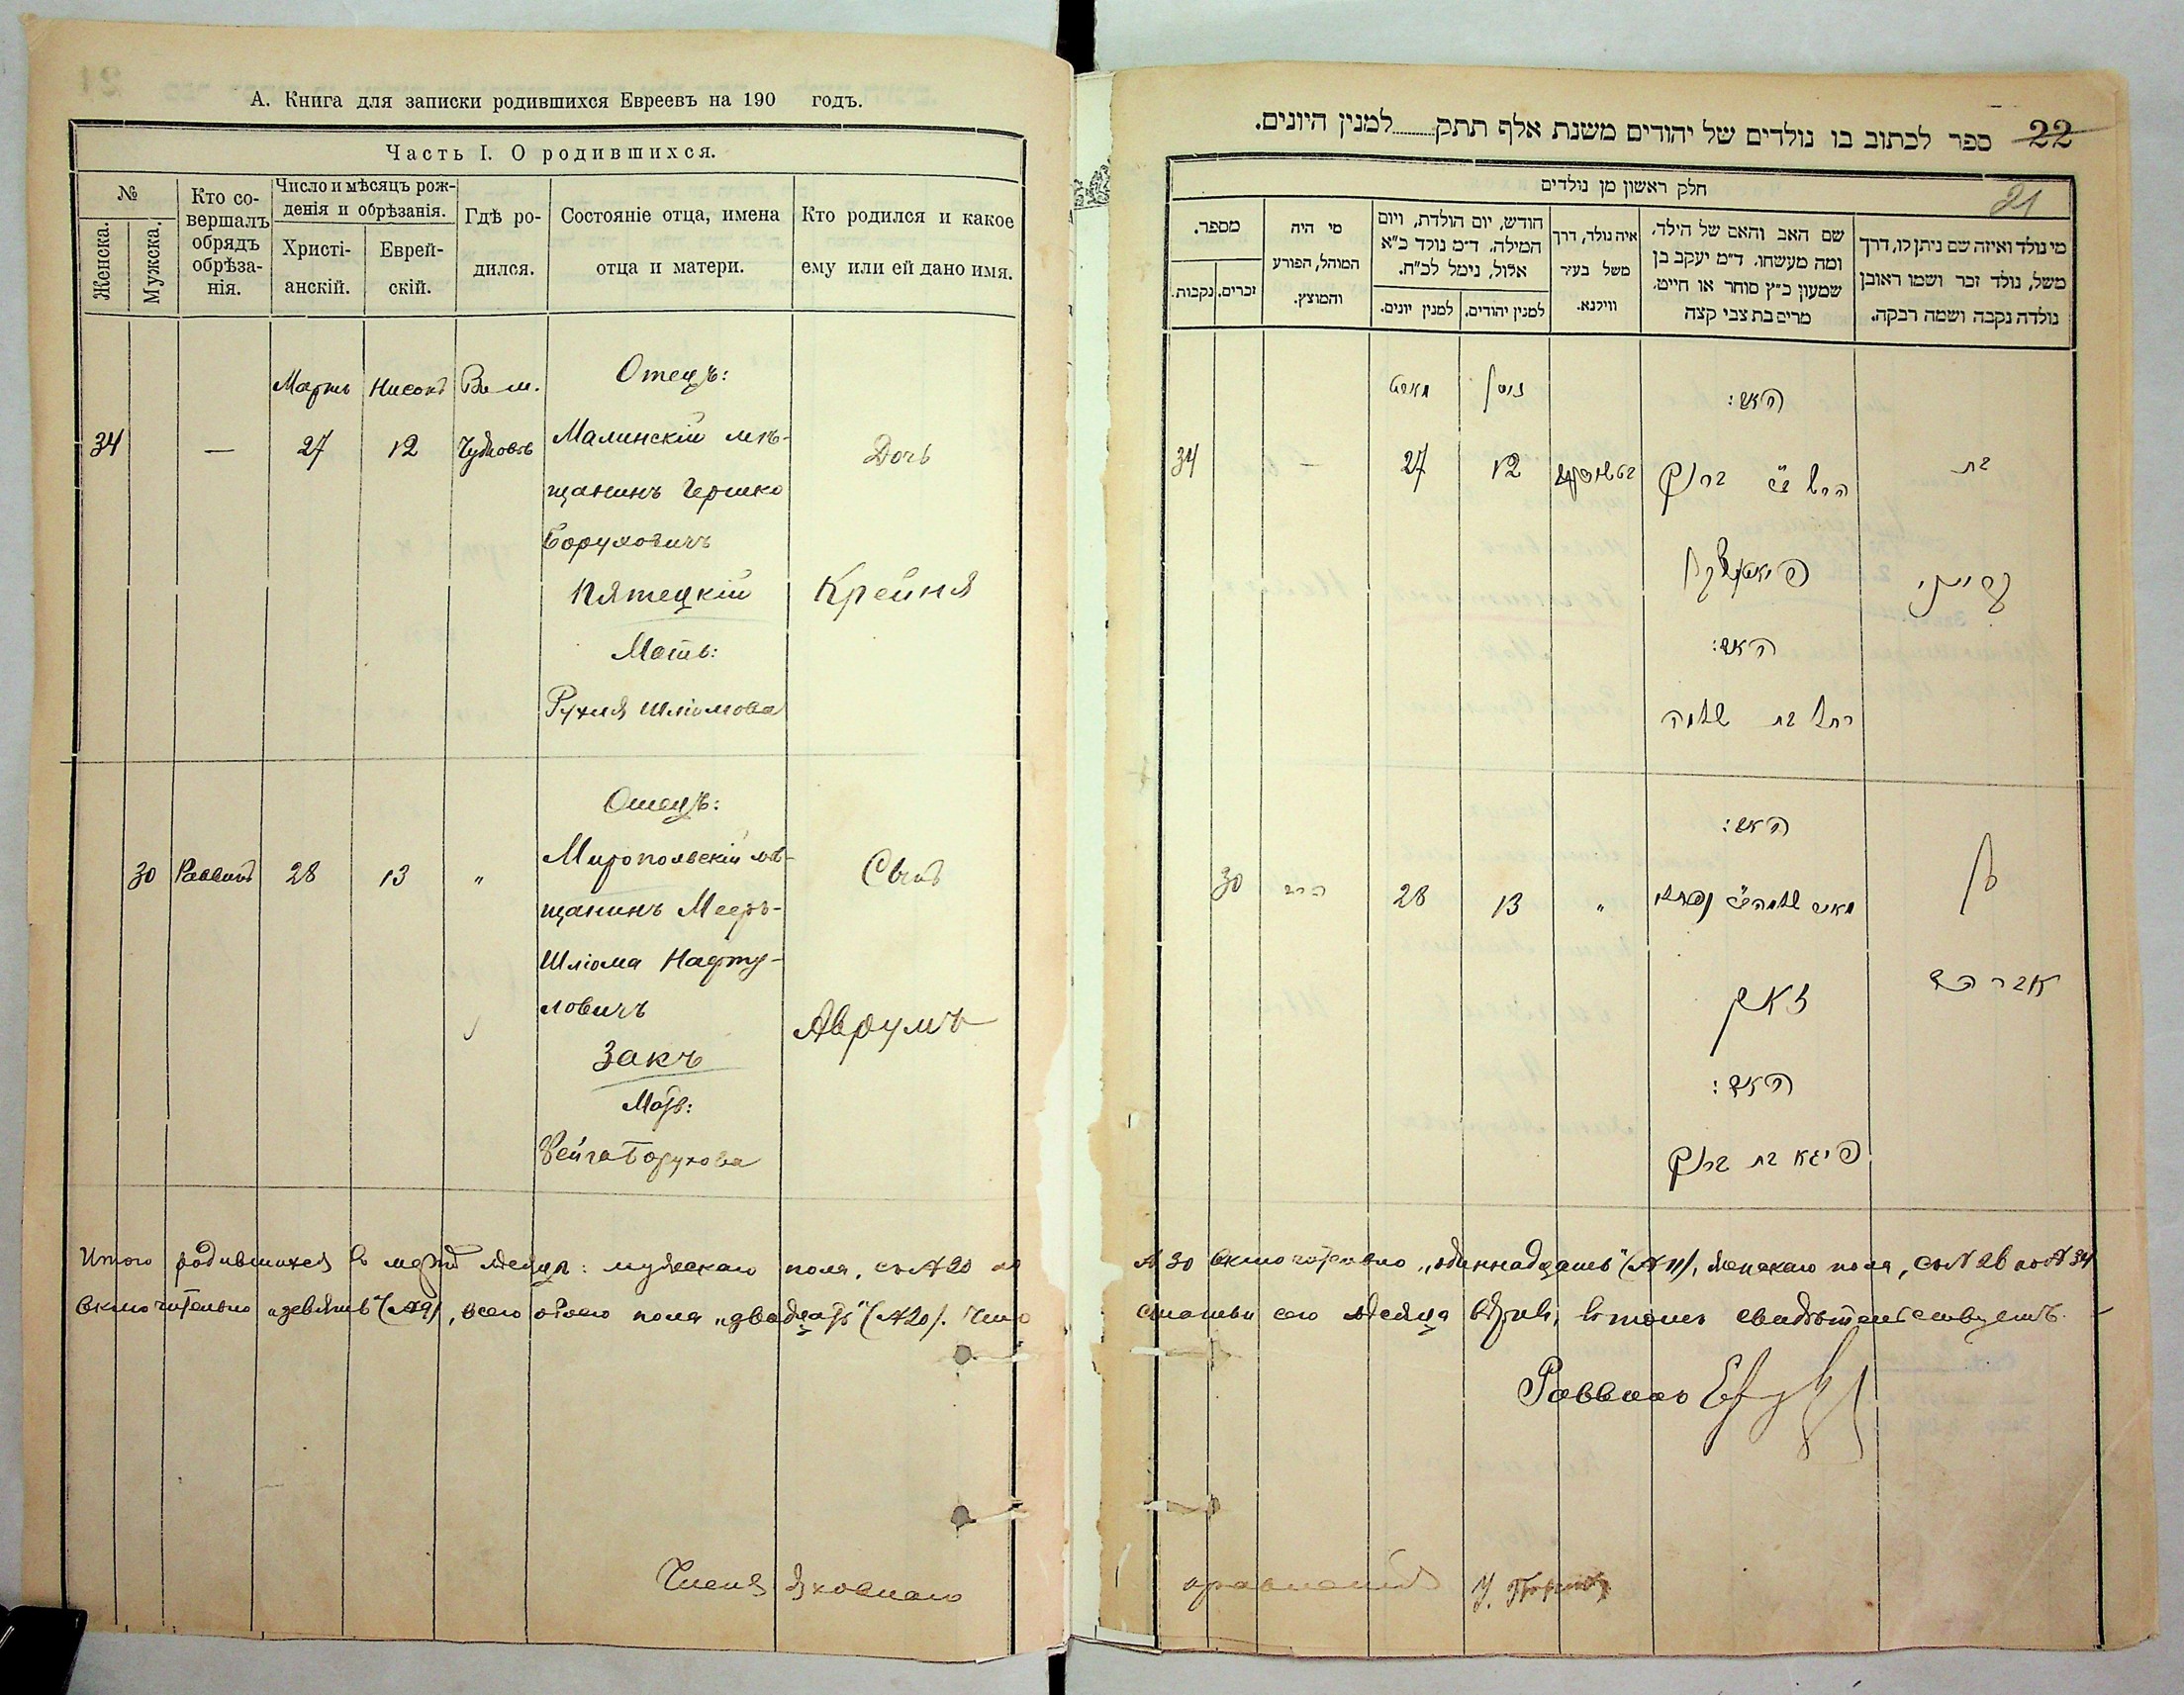 А. Книга для записки родившихся Евреевъ на 190 годъ.
Часть I. О родившихся.
№
Женска.
Мужска.
Кто со-
вершалъ
обрядъ
обрѣза-
нія.
Число и мѣсяцъ рож-
денія и обрѣзанія.
Христі-
анскій.
Еврей-
скій.
Гдѣ ро-
дился.
Состояніе отца, имена
отца и матери.
Кто родился и какое
ему или ей дано имя.
34
—
Мартъ
27
Нисонъ
12
Въ м.
Чудновъ
Отецъ:
Малинскій мѣ-
щанинъ Гершко
Боруховичъ
Пятецкій
Мать:
Рухля Шліомова
Дочь
Крейня
30
Раввинъ
28
13
„
Отецъ:
Миропольскій мѣ-
щанинъ Мееръ-
Шліома Нафту-
ловичъ
Закъ
Мать:
Фейга Борухова
Сынъ
Аврумъ
Итого родившихся въ мартѣ мѣсяцѣ: мужескаго пола, съ № 20 по
включительно „девять" (№ 9), всего обоего пола „двадцать" (№ 20). Что
Члены духовнаго
22
21
ספר לכתוב בו נולדים של יהודים משנת אלף תתק למנין היונים.
חלק ראשון מן נולדים
מספר.
נקבות.
זכרים.
מי היה
המוהל, הפורע
והמוצץ.
חודש, יום הולדת, ויום
המילה. ד״מ נולד כ״א
אלול, נימל לכ״ח.
למנין יונים.
למנין יהודים.
איה נולד, דרך
משל בעיר
ווילנא.
שם האב והאם של הילד,
ומה מעשהו. ד״מ יעקב בן
שמעון כ״ץ סוחר או חייט,
מרים בת צבי קצה
מי נולד ואיזה שם ניתן לו, דרך
משל, נולד זכר ושמו ראובן
נולדה נקבה ושמה רבקה.
34
—
מארט
27
ניסן
12
האב:
הרש ב״ר ברוך
פיאטעצקי
האם:
רחל בת שלמה
בת
קרייני
30
הרב
28
13
„
האב:
מאיר שלמה ב״ר נפתלי
זאק
האם:
פייגא בת ברוך
בן
אברהם
№ 30 включительно „одиннадцать" (№ 11), женскаго пола, съ № 26 по № 34
статьи сего мѣсяца вѣрны, въ томъ свидѣтельствуетъ.
Раввинъ
правленія